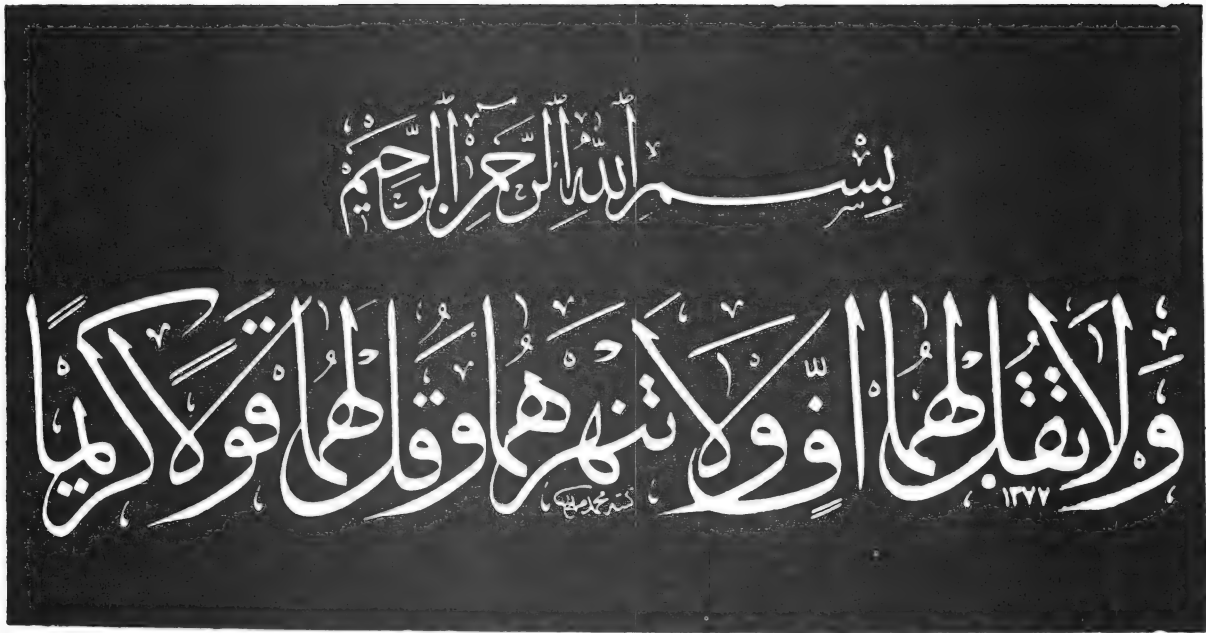 بِسْمِ ٱللَّهِ ٱلرَّحْمَٰنِ ٱلرَّحِيمِ
وَلَا تَقُل لَّهُمَا أُفٍّ وَلَا تَنْهَرْهُمَا وَقُل لَّهُمَا قَوْلًا كَرِيمًا
١٣٧٧
كتبه محمد صالح